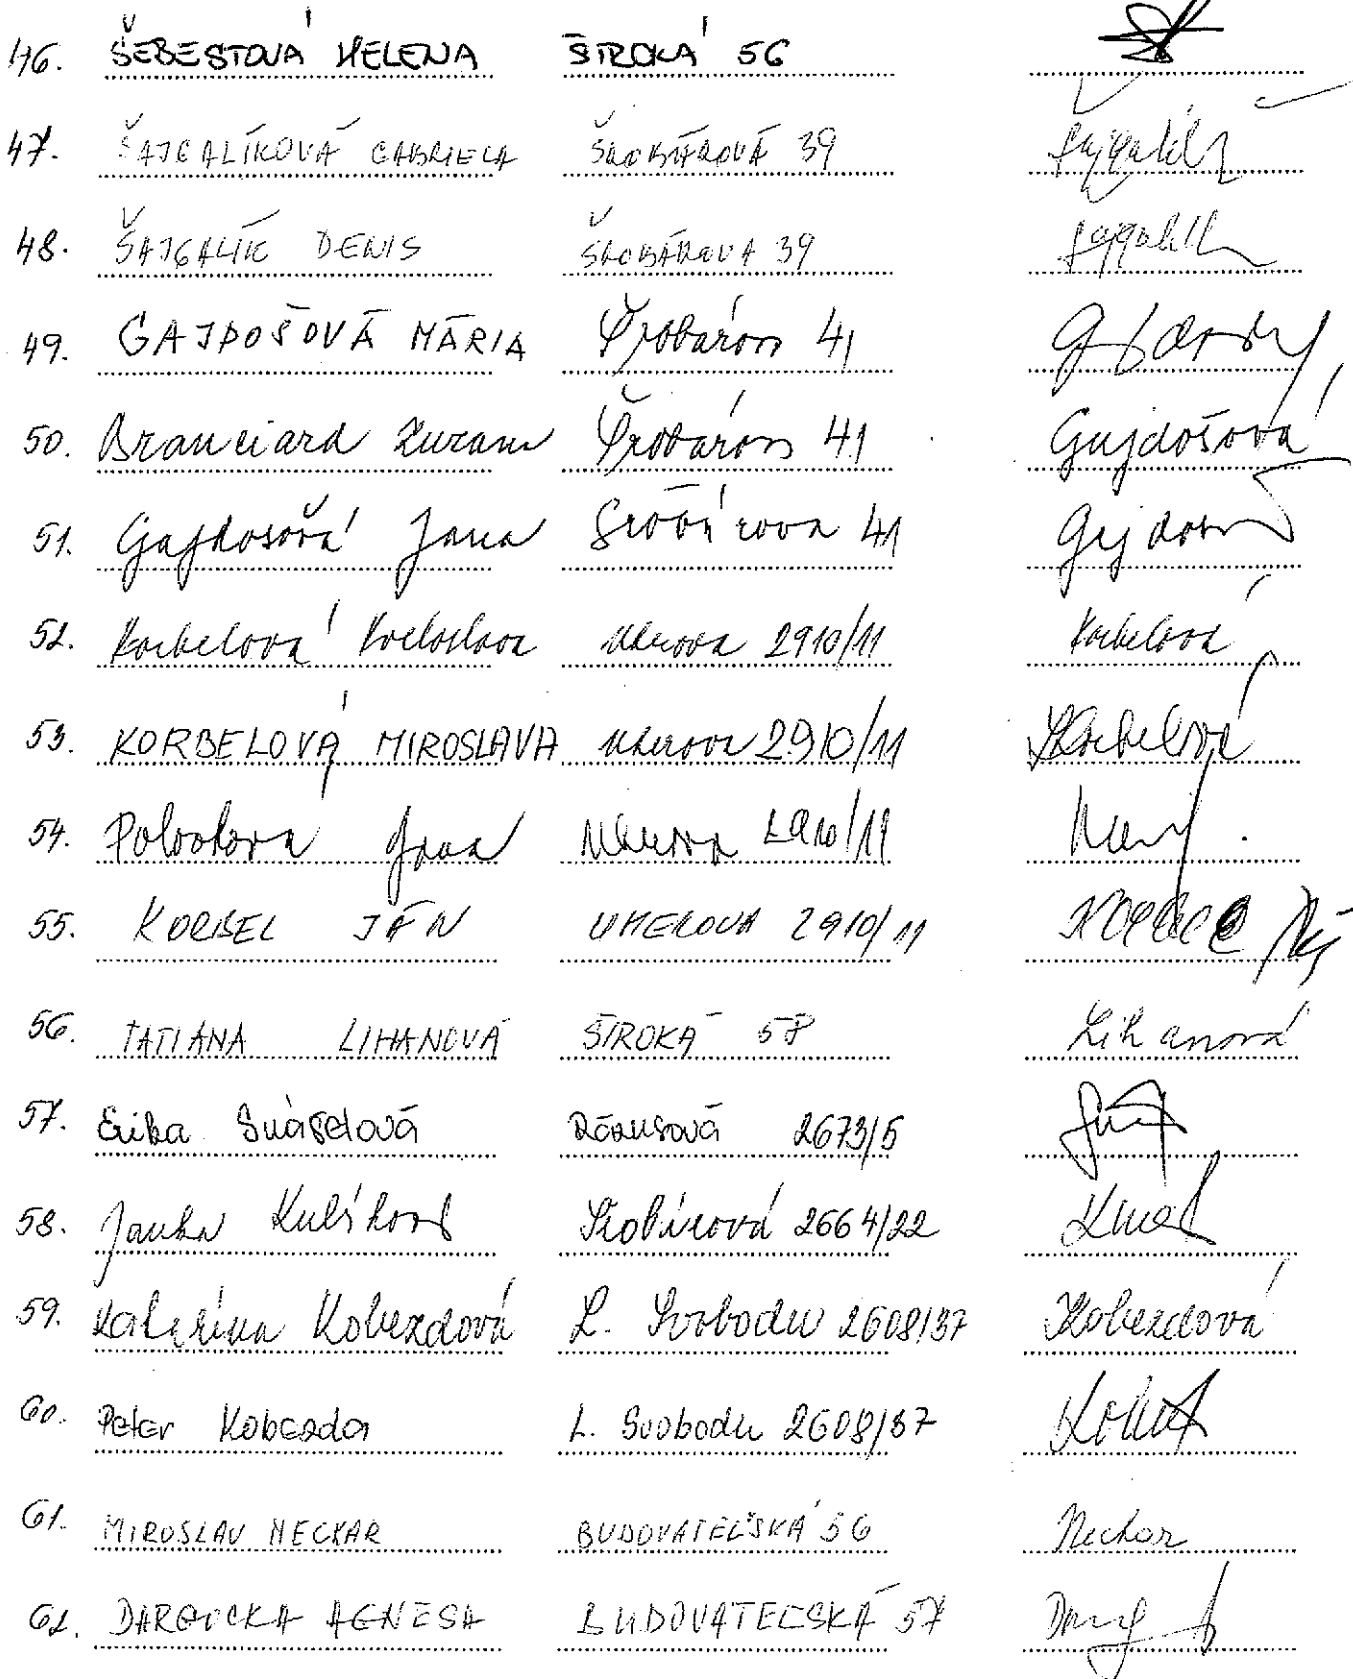 46. ŠEBESTOVÁ HELENA ŠIROKÁ 56
47. ŠAJGALÍKOVÁ GABRIELA ŠROBÁROVÁ 39
48. ŠAJGALÍK DENIS ŠROBÁROVA 39
49. GAJDOŠOVÁ MÁRIA Šrobárova 41
50. Branciard Zuzana Šrobárova 41 Gajdošová
51. Gajdošová Jana Šrobárova 41
52. Korbelová Uherova 2910/11 Korbelová
53. KORBELOVÁ MIROSLAVA Uherova 2910/11 Korbelová
54. Jana Uherova 2910/11
55. KORBEL JÁN UHEROVA 2910/11
56. TATIANA LIHANOVÁ ŠIROKÁ 58 Lihanová
57. Erika Rázusová 2673/5
58. Janka Šrobárová 2664/22
59. Katarína Kobezdová L. Svobodu 2608/37 Kobezdová
60. Peter Kobezda L. Svobodu 2608/37
61. MIROSLAV NECKAR BUDOVATEĽSKÁ 56 Neckar
62. AGNESA BUDOVATEĽSKÁ 57